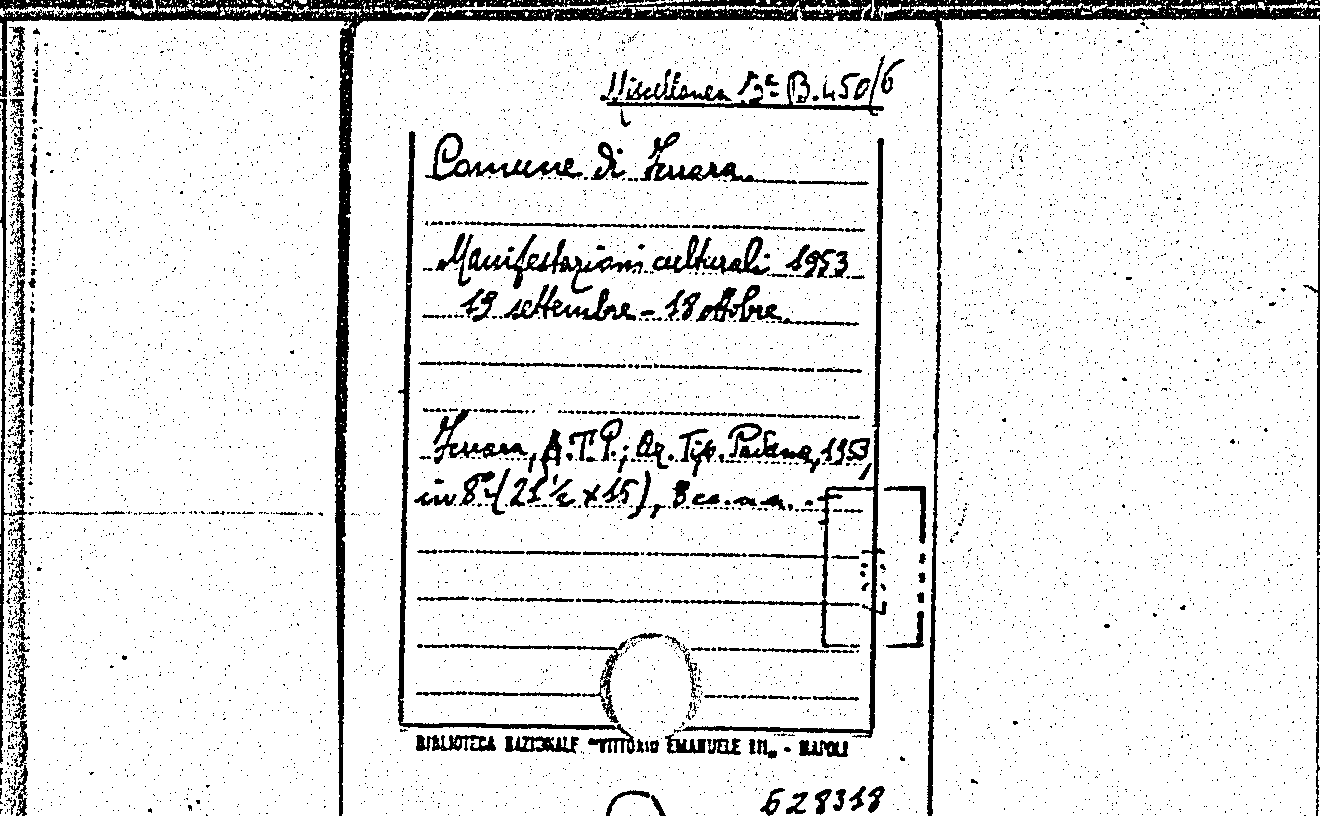 Miscellanea Bª B.450/6
Comune di Ferrara.
Manifestazioni culturali 1953
19 settembre - 18 ottobre.
Ferrara, A.T.P.; Az. Tip. Padana, 1953,
in 8º (21½ x 15), 8 cc. n. n. . -
BIBLIOTECA NAZIONALE "VITTORIO EMANUELE III„ - NAPOLI
628318